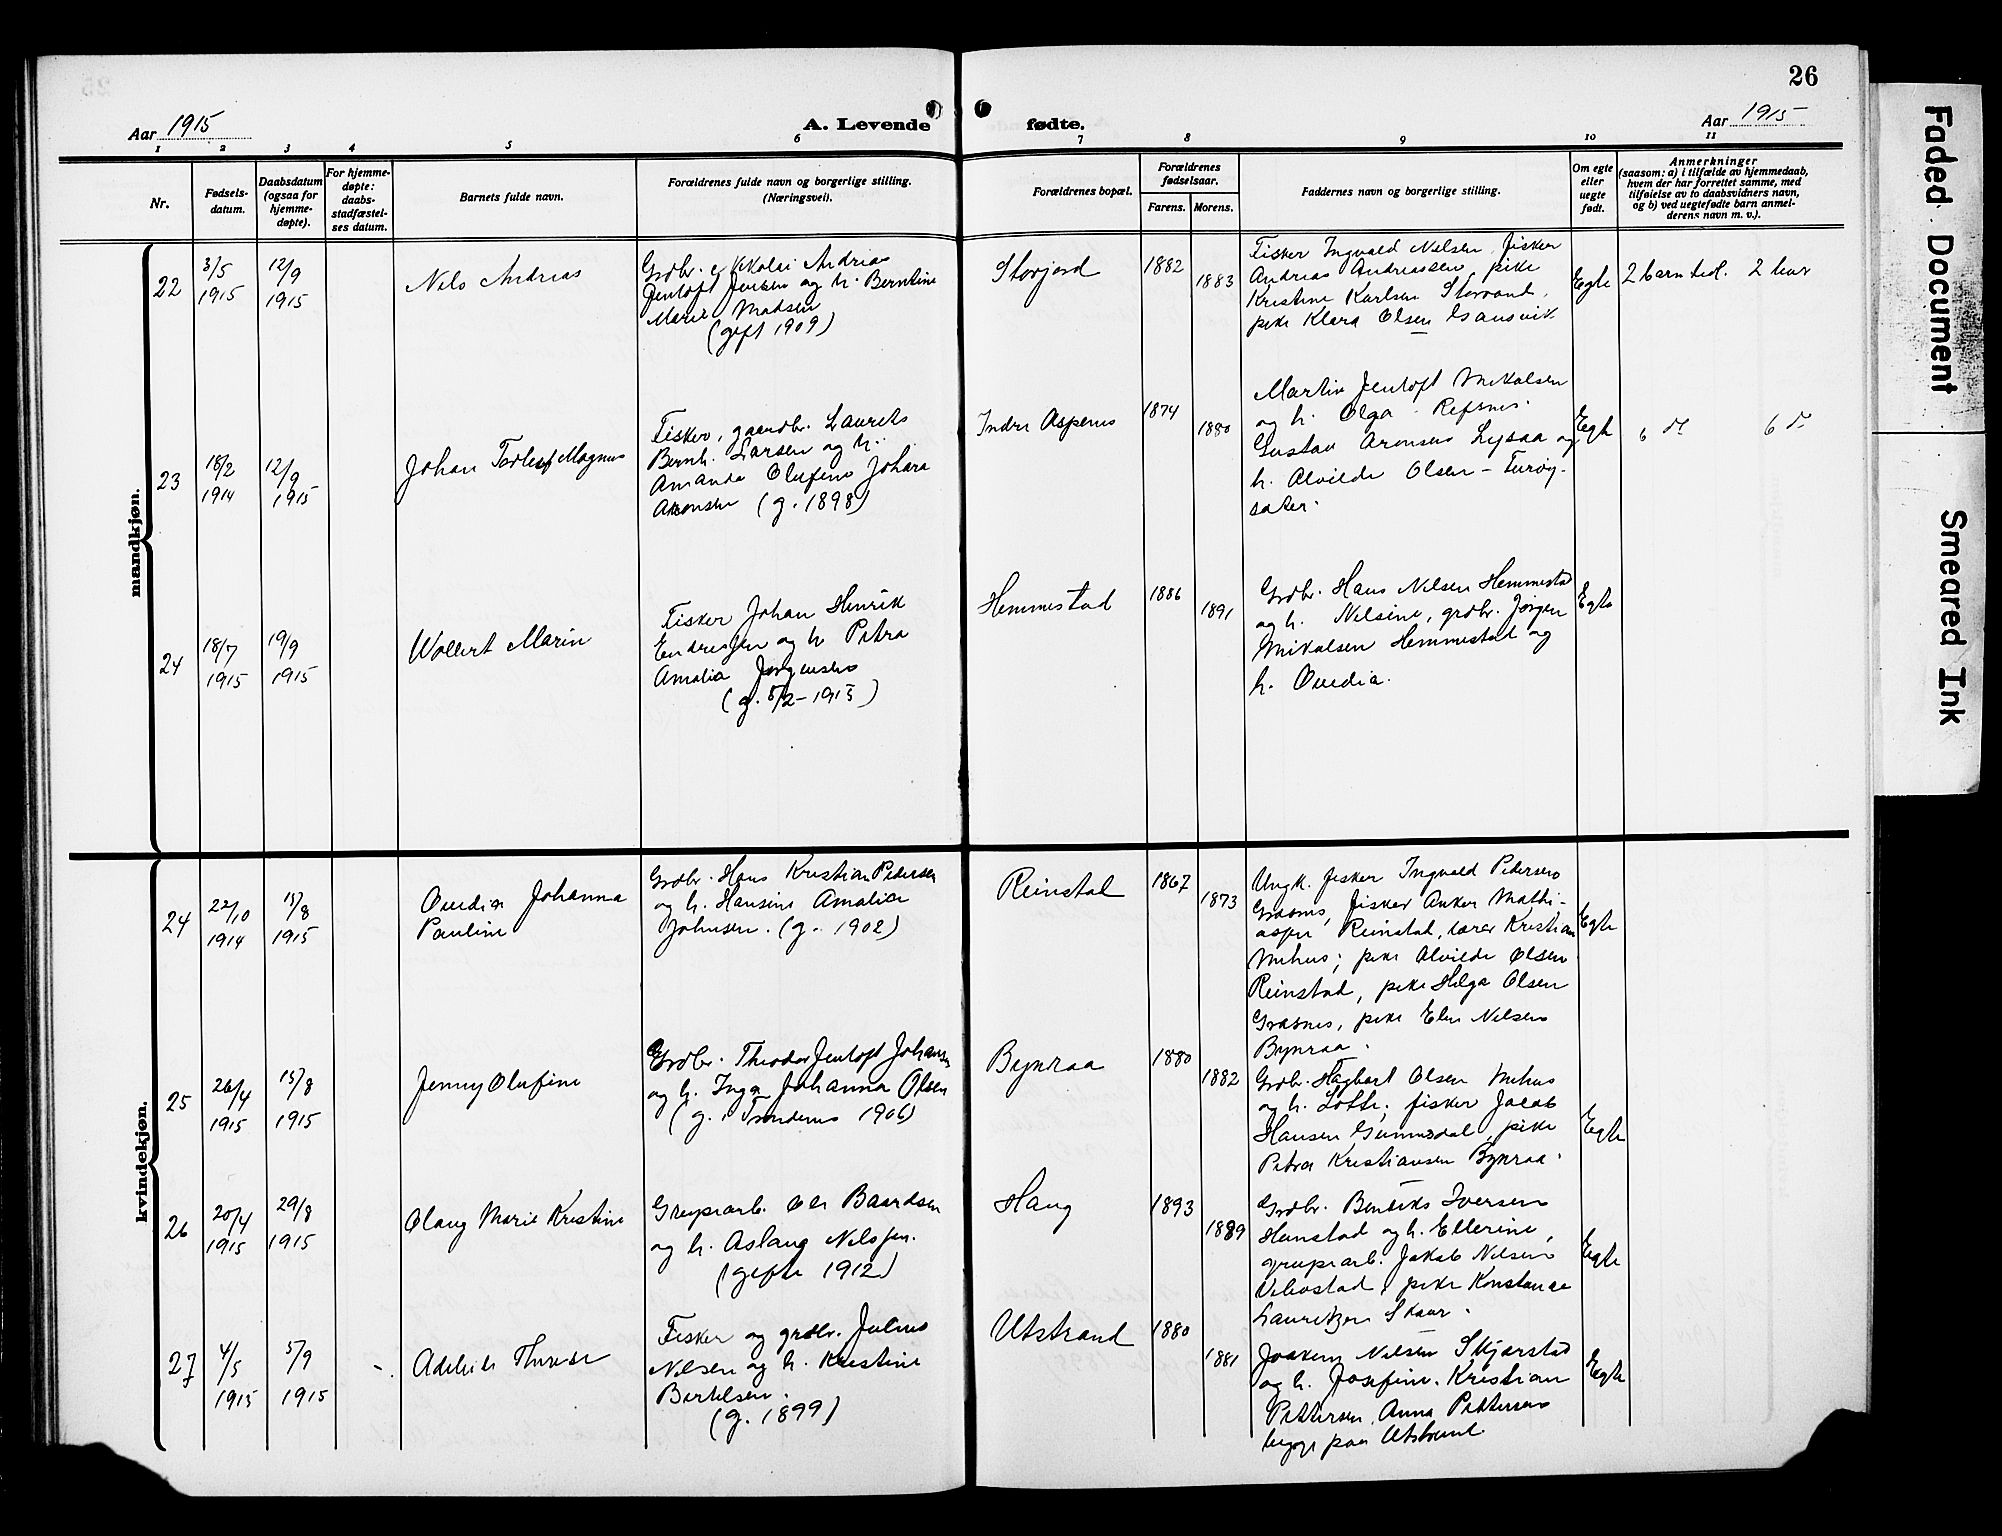 26
Aar 1915
A. Levende fødte.
Aar 1915
1 2 3 4 5 6 7 8 9 10 11
Nr.
Fødsels-
datum.
Daabsdatum
(ogsaa for
hjemme-
døpte).
For hjemme-
døpte:
daabs-
stadfæstel-
ses datum.
Barnets fulde navn.
Forældrenes fulde navn og borgerlige stilling.
(Næringsvei).
Forældrenes bopæl.
Forældrenes
fødselsaar.
Farens. Morens.
Faddernes navn og borgerlige stilling.
Om egte
eller
uegte
født.
Anmerkninger
(saasom: a) i tilfælde av hjemmedaab,
hvem der har forrettet samme, med
tilføielse av to daabsvidners navn,
og b) ved uegtefødte barn anmel-
derens navn m. v.).
mandkjøn.
22
3/5
1915
12/9
1915
Nils Andreas
Grdbr. Nikolai Andreas
Jentoft Jensen og h. Berntine
Marie Madsen
(gift 1909)
Storjord
1882
1883
Fisker Ingvald Nilsen, fisker
Andreas Andreassen, pike
Kristine Karlsen Storvand,
pike Klara Olsen
Egte
2 barn tid. 2 lever
23
18/2
1914
12/9
1915
Johan Torleif Magnus
Fisker, gaardbr. Laurits
Bernh. Larsen og h.
Amanda Olufine Johara
Aronsen (g. 1898)
Indre Aspenes
1874
1880
Martin Jentoft Mikalsen
og h. Olga Refsnes.
Gustav Aronsen Lysaa og
h. Alvilde Olsen – Turøy-
sater.
Egte
6 do 6 do
24
18/7
1915
19/9
1915
Wollert Marin
Fisker Johan Henrik
Endresen og h. Petra
Amalia Jørgensen
(g. 5/2 – 1915)
Hemmestad
1886
1891
Grdbr. Hans Nilsen Hemmestad
og h. Nilsine, grdbr. Jørgen
Mikalsen Hemmestad og
h. Ovedia.
Egte
kvindekjøn.
24
22/10
1914
15/8
1915
Ovedia Johanna
Pauline
Grdbr. Hans Kristian Pedersen
og h. Hansine Amalia
Johnsen. (g. 1902)
Reinstad
1867
1873
Ungk. fisker Ingvald Pedersen
Grasnes, fisker Anker Mathi-
asen Reinstad, lærer Kristian
Mehus; pike Alvilde Olsen
Reinstad, pike Helga Olsen
Grasnes, pike Elen Nilsen
Bynraa.
Egte
25
26/4
1915
15/8
1915
Jenny Olufine
Grdbr. Theodor Jentoft Johansen
og h. Inga Johanna Olsen
(g. i Trondenes 1906)
Bynraa
1880
1882
Grdbr. Hagbart Olsen Mehus
og h. Lotte; fisker Jacob
Hansen Gummesdal, pike
Petra Kristiansen Bynraa.
Egte
26
20/4
1915
29/8
1915
Olaug Marie Kristine
Grupearb. Ole Baardsen
og h. Aslaug Nilssen.
(gifte 1912)
Haug
1893
1889
Grdbr. Bendiks Iversen
Hanstad og h. Ellerine,
grupearb. Jakob Nilsen
Vebostad, pike Konstanse
Lauritzen Skaar.
Egte
27
4/5
1915
5/9
1915
Adeleide Therese
Fisker og grdbr. Julius
Nilsen og h. Kristine
Bertelsen.
(g. 1899)
Utstrand
1880
1881
Joakim Nilsen Skjærstad
og h. Josefine. Kristian
Pettersen, Anna Pettersen
begge paa Utstrand.
Egte
Faded Document
Smeared Ink